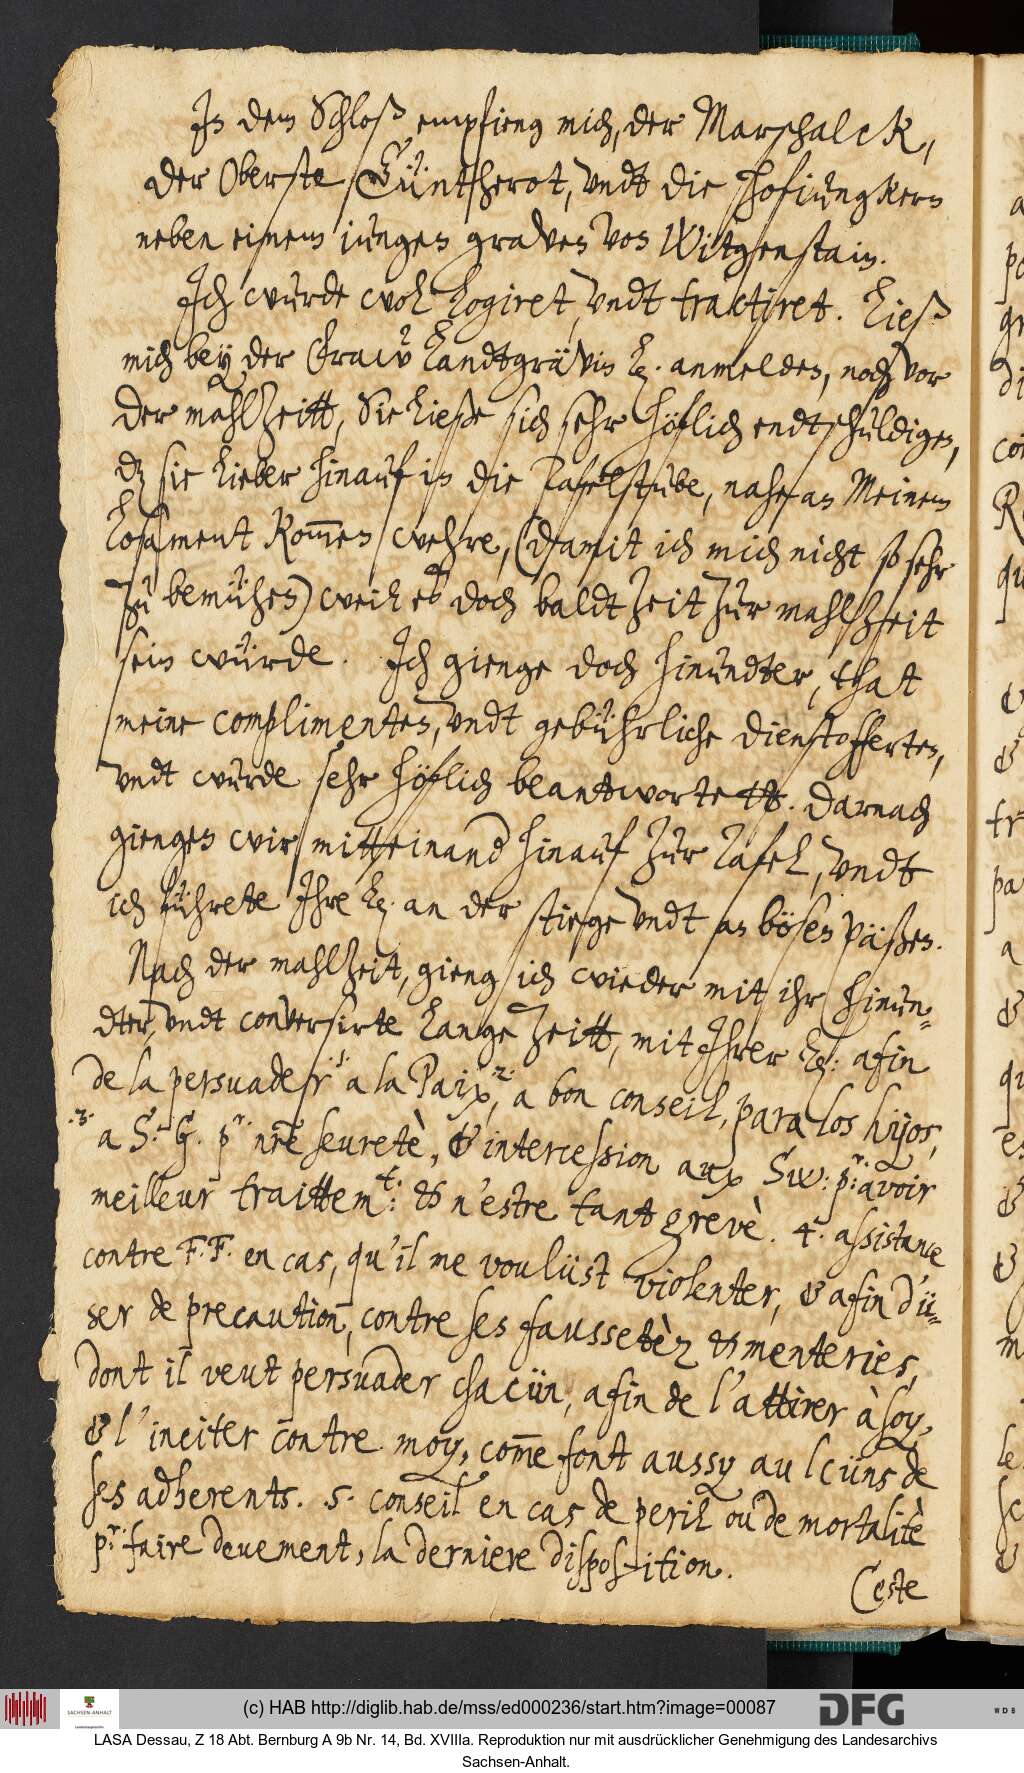 In dem Schloß empfieng mich, der Marschalck,
der Oberste Güntherot, vndt die hofiungkern
neben einem iungen graven von Witgenstain.
Ich wurde wol logiret, vndt tractiret. Ließ
mich bey der Fraw Landtgrävin L. anmelden, noch vor
der mahlzeitt, Sie ließe sich sehr höflich endtschuldigen,
dz sie lieber hinauf in die Tafelstube, nahe an Meinem
losament kom̅en wehre, (damit ich mich nicht so sehr
zu bemühen) weil es doch baldt zeit zur mahlzeit
sein würde. Ich gienge doch hinundter, that
meine complimenten, vndt gebührliche dienstofferten,
vndt wurde sehr höflich beantwortett. Darnach
giengen wir mitteinand hinauf zur Tafel, vndt
ich führete Ihre L. an der stiege vndt an bösen päßen.
Nach der mahlzeit, gieng ich wieder mit ihr hinun=
dter, vndt conversirte lange zeitt, mit Ihrer L: afin
de la persuader 1. a la Paix, 2. a bon conseil, para los hijos,
.3. a S. G. pr. nr̅e seuretè, & intercession aux Sw: pr: avoir
meilleur traittemt: & n'estre tant grevè. 4. assistance
contre F. F. en cas, qu'il me voulüst violenter, & afin d'ü=
ser de precaution, contre ses faussetèz & menteries,
dont il veut persuader chacün, afin de l'attirer à soy,
& l'inciter contre moy, com̅e font aussy aulcüns de
ses adherents. .5. conseil en cas de peril ou de mortalitè
pr. faire deuement, la derniere disposition.
Ceste
(c) HAB http://diglib.hab.de/mss/ed000236/start.htm?image=00087
DFG
WDB
SACHSEN-ANHALT
LASA Dessau, Z 18 Abt. Bernburg A 9b Nr. 14, Bd. XVIIIa. Reproduktion nur mit ausdrücklicher Genehmigung des Landesarchivs
Sachsen-Anhalt.